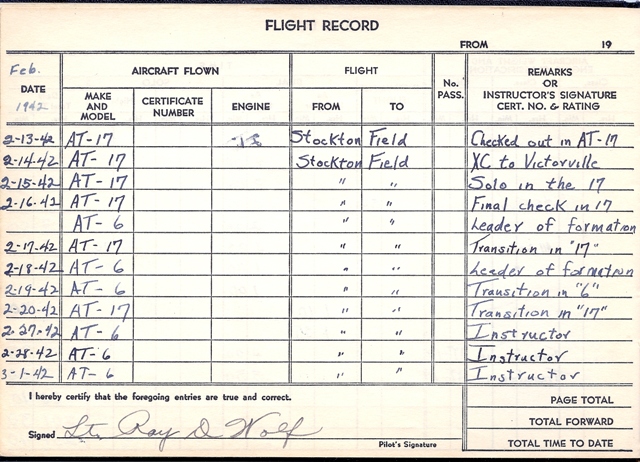 FLIGHT RECORD
FROM 19
Feb.
DATE
1942
AIRCRAFT FLOWN
FLIGHT
No. PASS.
REMARKS
OR
INSTRUCTOR'S SIGNATURE
CERT. NO. & RATING
MAKE AND MODEL
CERTIFICATE NUMBER
ENGINE
FROM
TO
2-13-42 AT-17 Stockton Field Checked out in AT-17
2-14-42 AT-17 Stockton Field XC to Victorville
2-15-42 AT-17 " " Solo in the 17
2-16-42 AT-17 " " Final check in 17
AT-6 " " Leader of formation
2-17-42 AT-17 " " Transition in "17"
2-18-42 AT-6 " " Leader of formation
2-19-42 AT-6 " " Transition in "6"
2-20-42 AT-17 " " Transition in "17"
2-27-42 AT-6 " " Instructor
2-28-42 AT-6 " " Instructor
3-1-42 AT-6 " " Instructor
I hereby certify that the foregoing entries are true and correct.
PAGE TOTAL
TOTAL FORWARD
Signed Lt. Ray D Wolf
Pilot's Signature
TOTAL TIME TO DATE